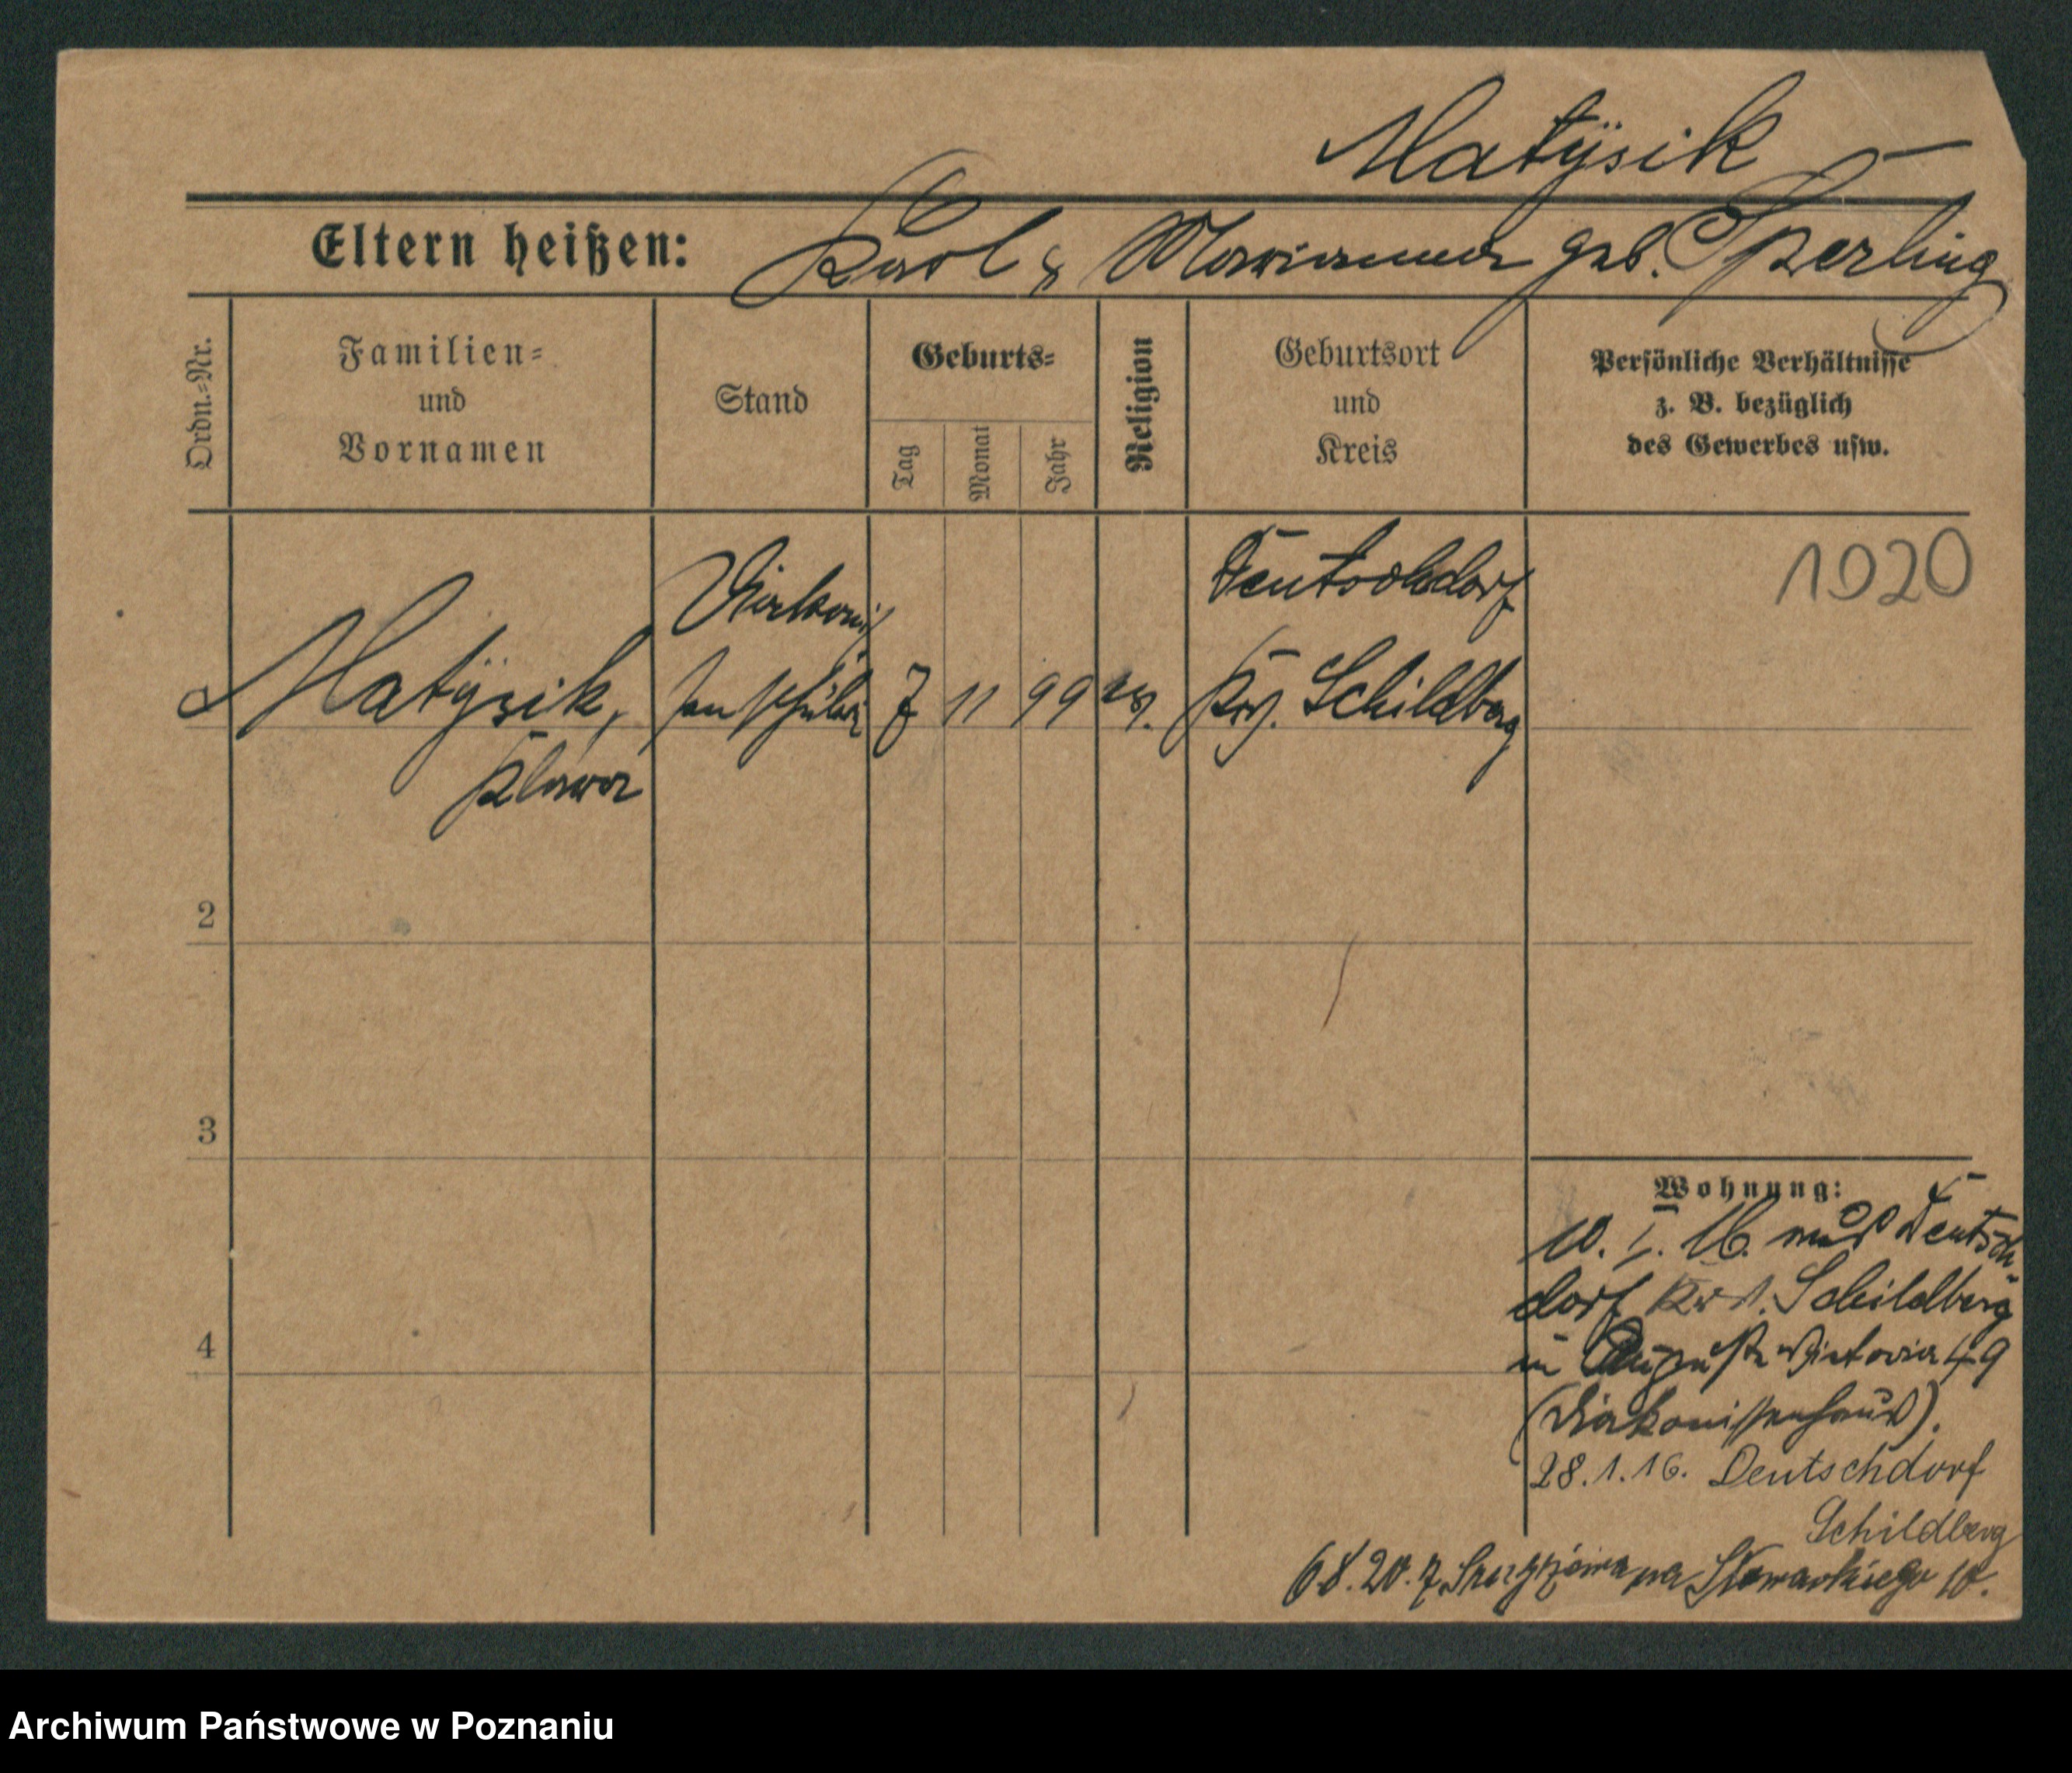 Matÿsik
Eltern heißen: Karl & Marianna geb. Sperling
Ordn.-Nr.
Familien-
und
Vornamen
Stand
Geburts-
Tag
Monat
Jahr
Religion
Geburtsort
und
Kreis
Persönliche Verhältnisse
z. B. bezüglich
des Gewerbes usw.
1920
Matÿsik,
Klara
Diakonis
senschüleri
7
11
99
ev.
Deutschdorf
Krs. Schildberg
2
3
4
Wohnung:
10. I. 16. aus Deutsch
dorf Krs. Schildberg
in Auguste Victoria 49
(Diakonissenhaus).
28.1.16. Deutschdorf
Schildberg
6.8.20. z na Słowackiego 10.